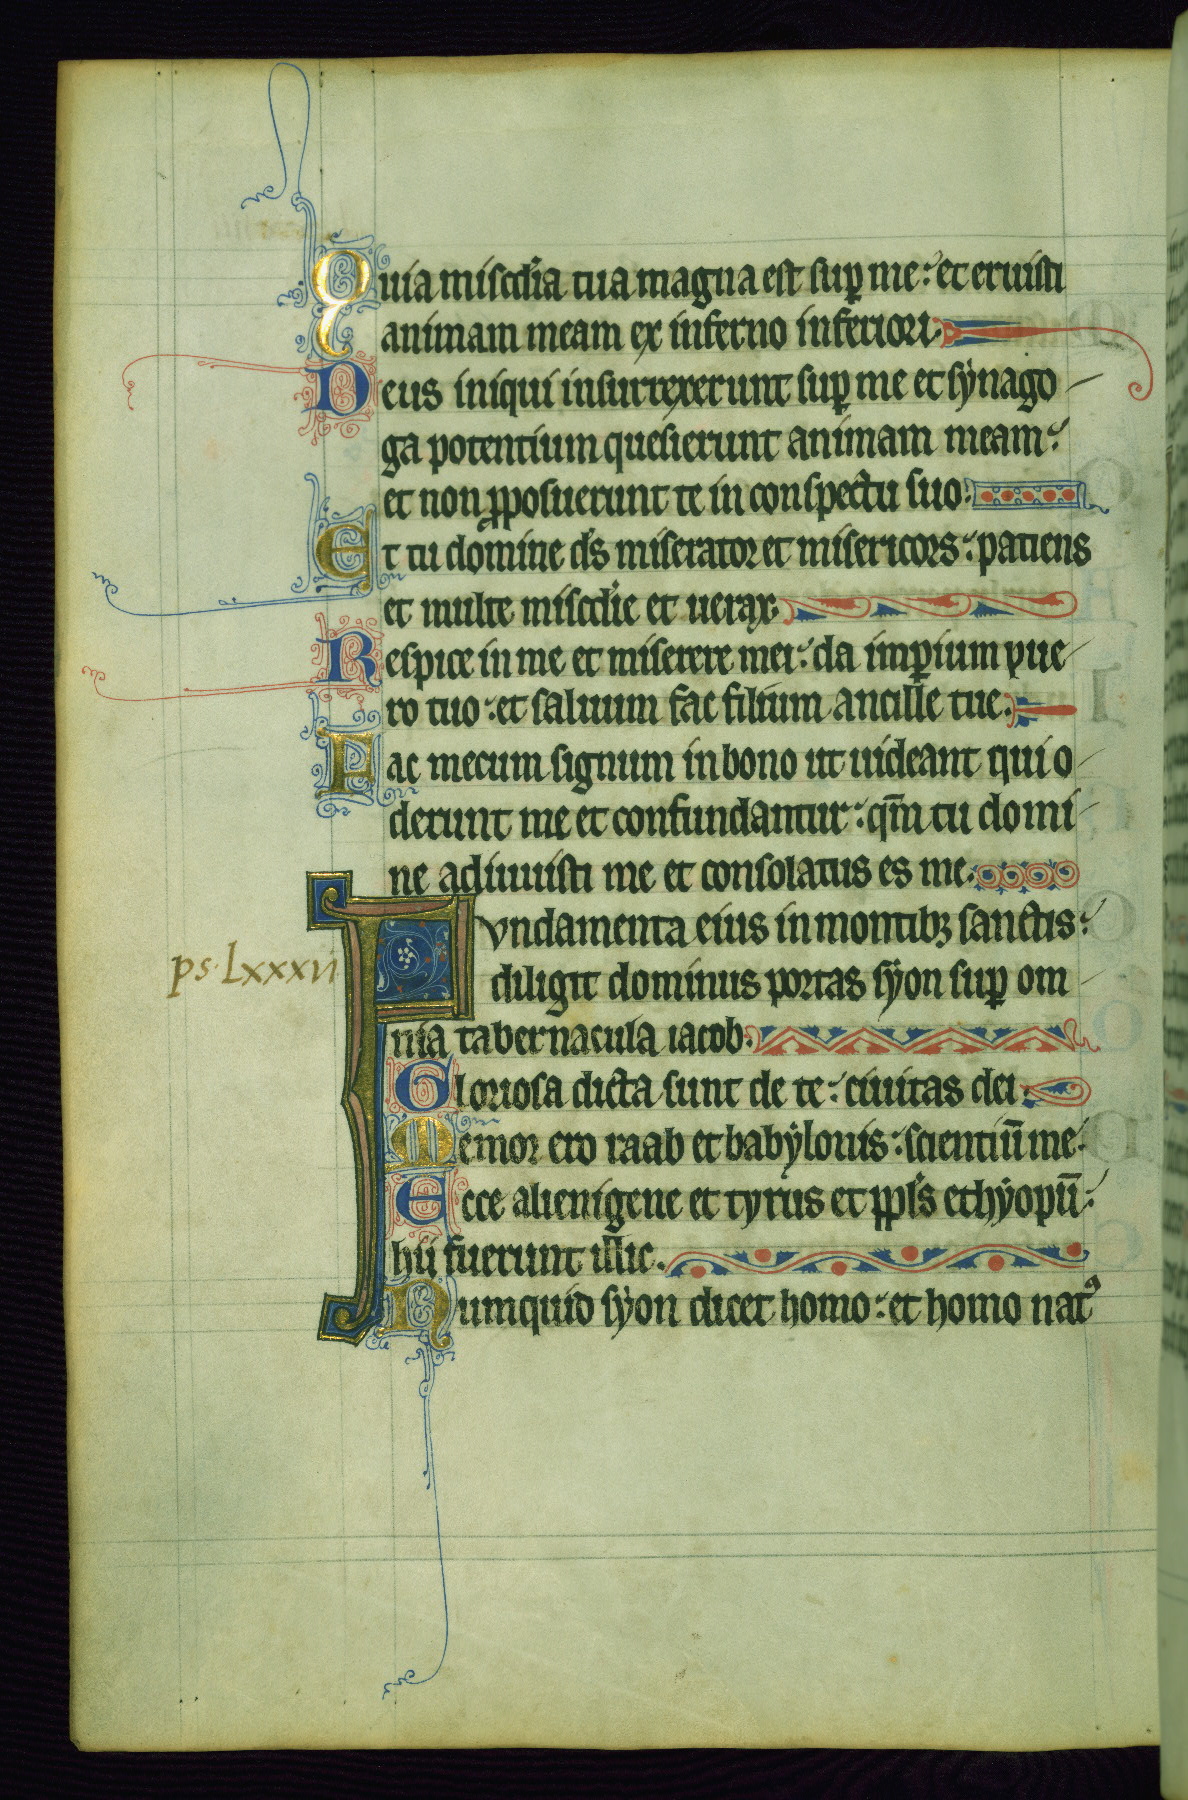 Quia miscd̄ia tua magna est sup̱ me: et eruisti
animam meam ex inferno inferiori.
Deus iniqui insurrexerunt sup̱ me et synago
ga potentium quesierunt animam meam:
et non p̱posuerunt te in conspectu suo.
Et tu domine d̄s miserator et misericors: patiens
et multe miscd̄ie et uerax.
Respice in me et miserere mei: da imp̱ium pue
ro tuo: et saluum fac filium ancille tue.
Fac mecum signum in bono ut uideant qui o
derunt me et confundantur: qm̄ tu domi
ne adiuuisti me et consolatus es me.
Fundamenta eius in montibꝫ sanctis:
ps. Lxxxvi
diligit dominus portas syon sup̱ om
nia tabernacula iacob.
Gloriosa dicta sunt de te: ciuitas dei.
Memor ero raab et babylonis: scientiū me.
Ecce alienigene et tyrus et pp̄ls ethyopū:
hii fuerunt illic.
Numquid syon dicet homo: et homo natꝰ